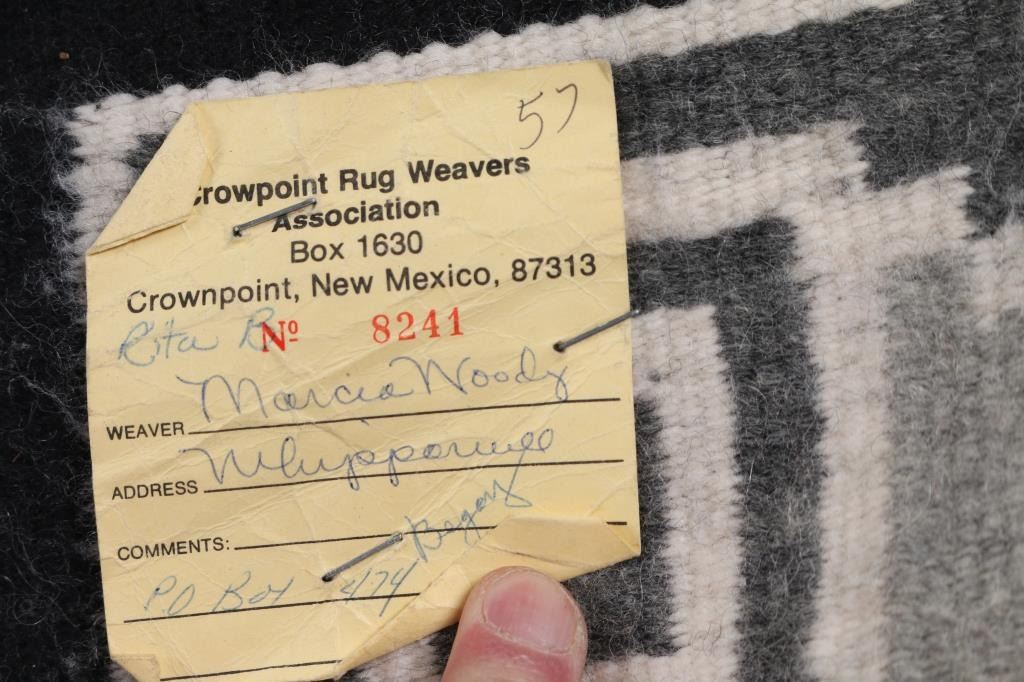 57
Crowpoint Rug Weavers
Association
Box 1630
Crownpoint, New Mexico, 87313
Rita B
Nº 8241
WEAVER Marcia Woody
ADDRESS Whipporwill
COMMENTS: Begay
PO Box 474